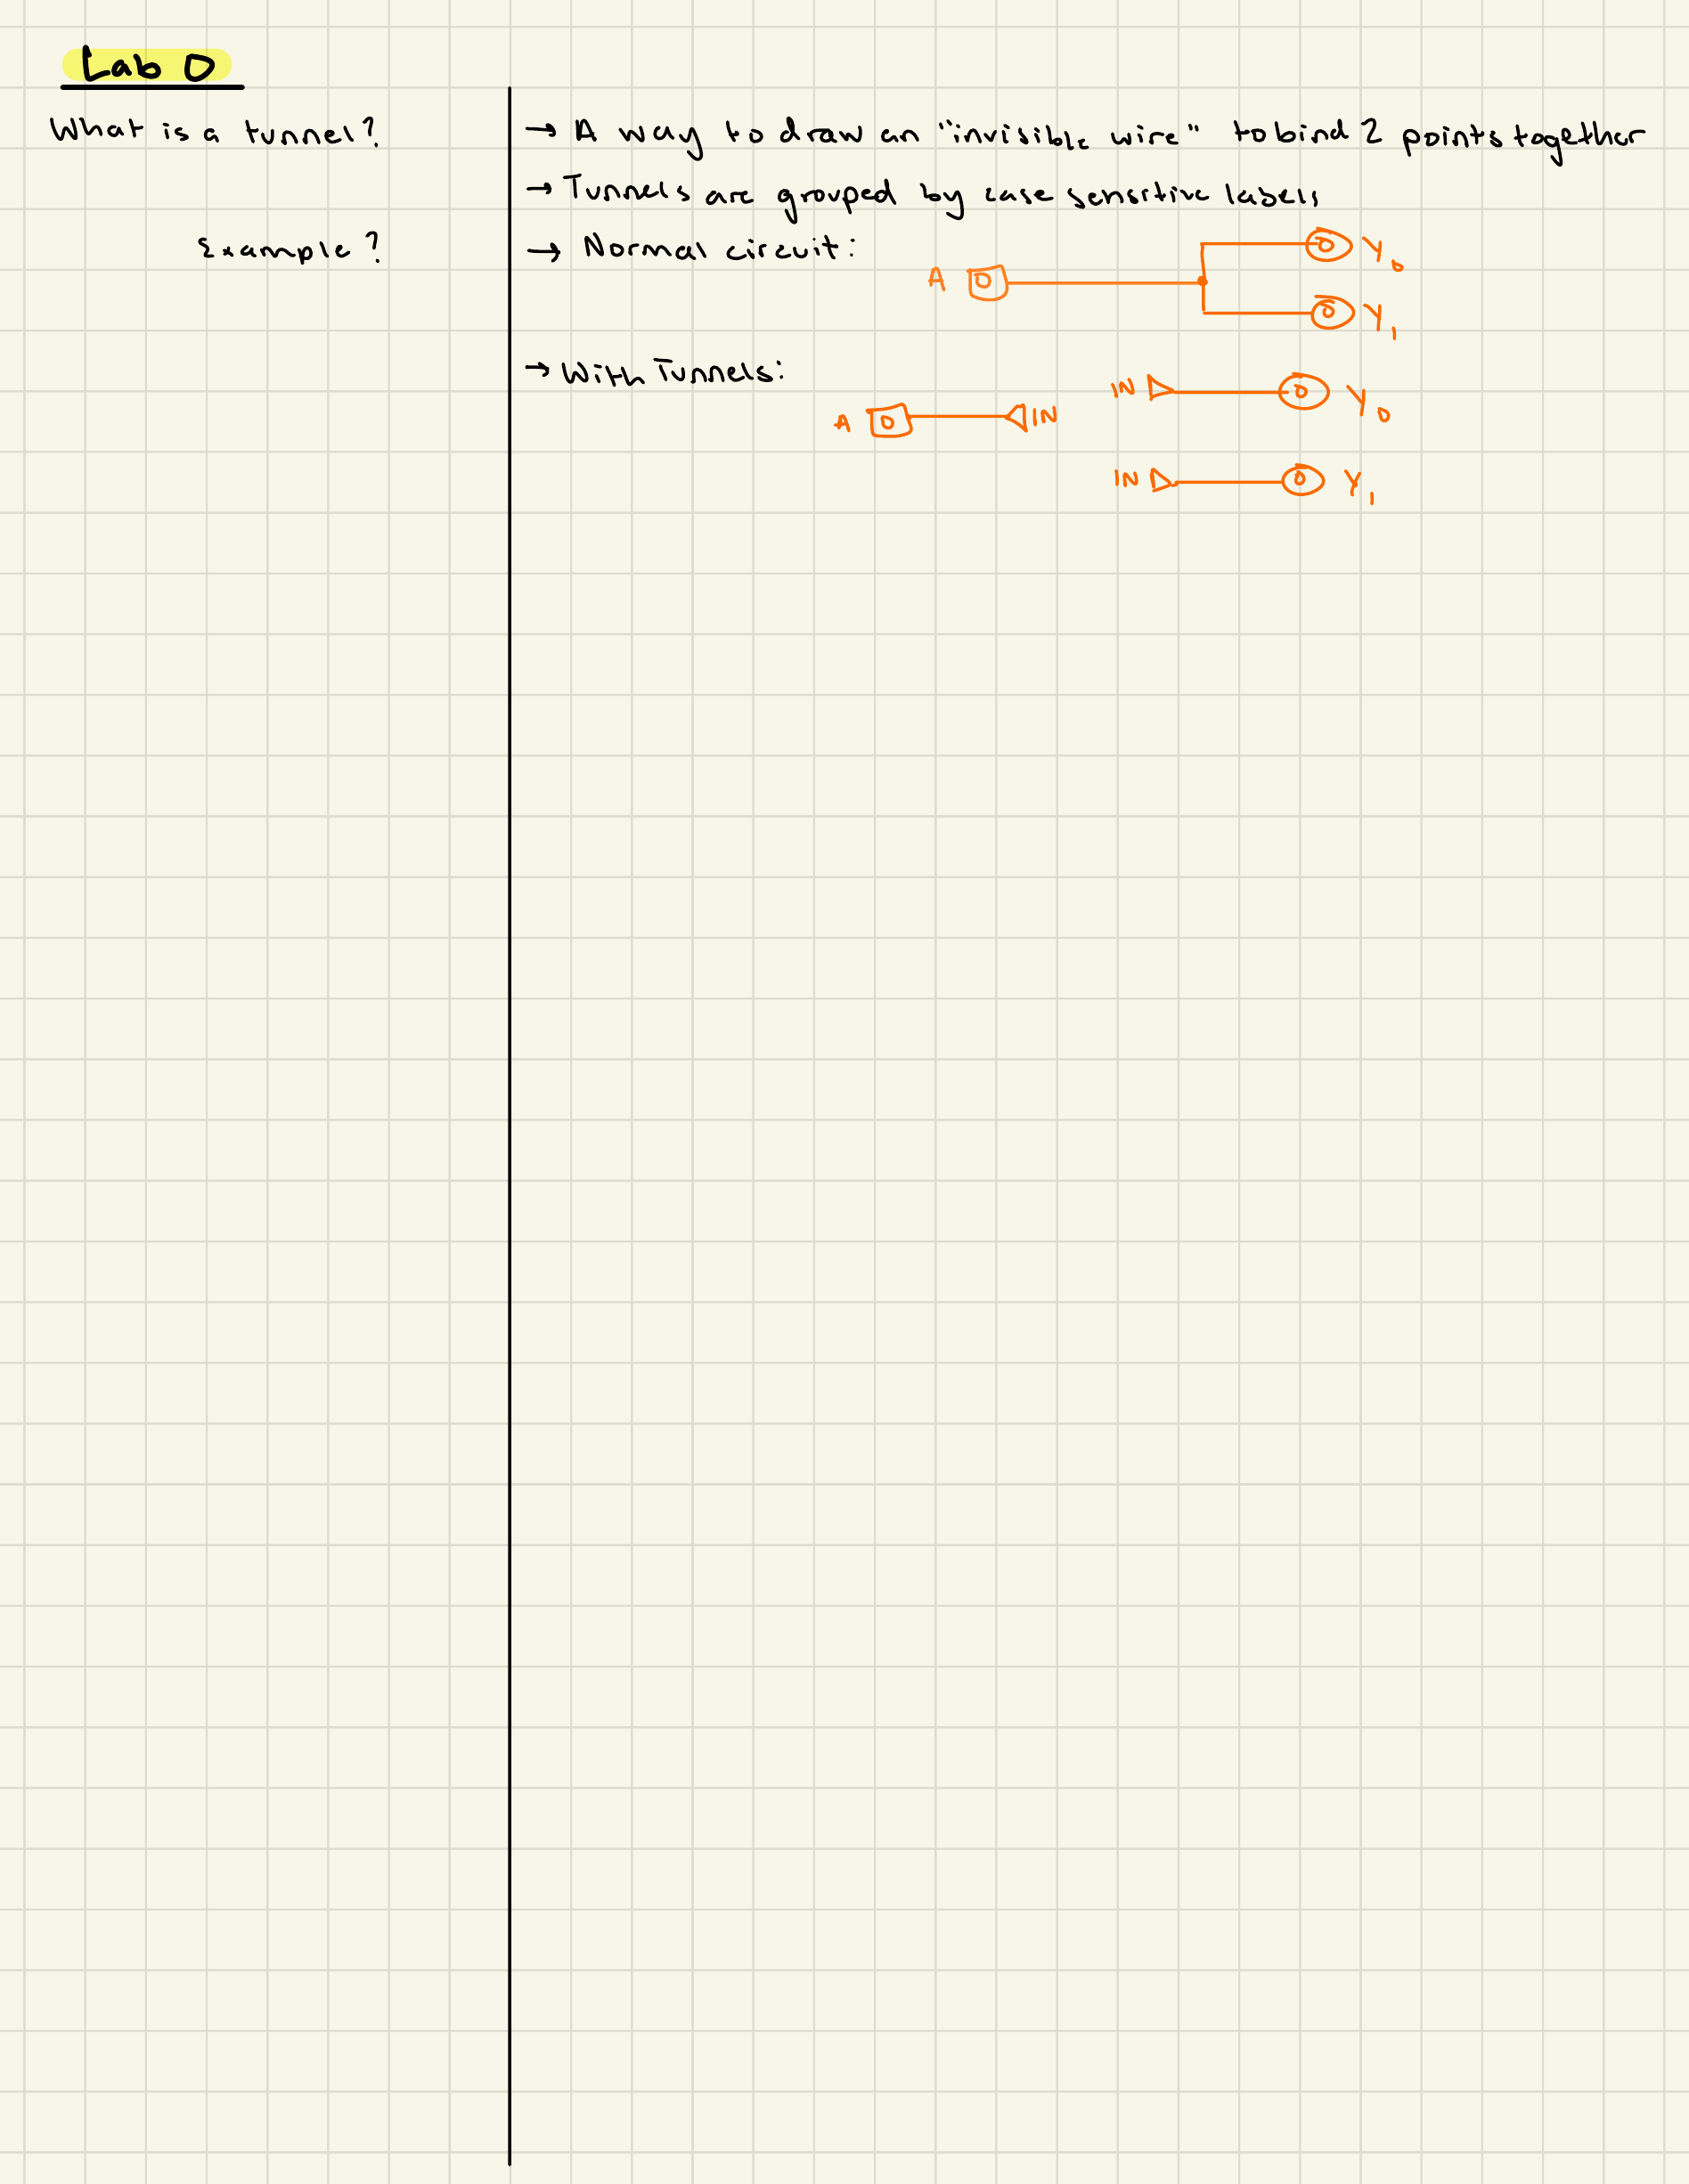 Lab 0
What is a tunnel?
→ A way to draw an "invisible wire" to bind 2 points together
→ Tunnels are grouped by case sensitive labels
Example?
→ Normal circuit:
0 Y0
A 0
0 Y1
→ With Tunnels:
IN 0 Y0
A 0 IN
IN 0 Y1